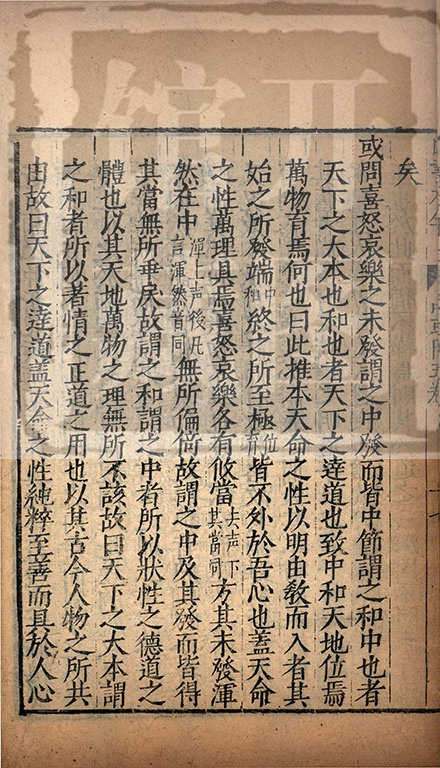 矣
或問喜怒哀樂之未發謂之中發而皆中節謂之和中也者
天下之大本也和也者天下之達道也致中和天地位焉
萬物育焉何也曰此推本天命之性以明由敎而入者其
始之所發端中和終之所至極位育皆不外於吾心也蓋天命
之性萬理具焉喜怒哀樂各有攸當去声下其當同方其未發渾
然在中渾上声後凡言渾然音同無所偏倚故謂之中及其發而皆得
其當無所乖戾故謂之和謂之中者所以狀性之德道之
體也以其天地萬物之理無所不該故曰天下之大本謂
之和者所以著情之正道之用也以其古今人物之所共
由故曰天下之達道蓋天命之性純粹至善而具於人心